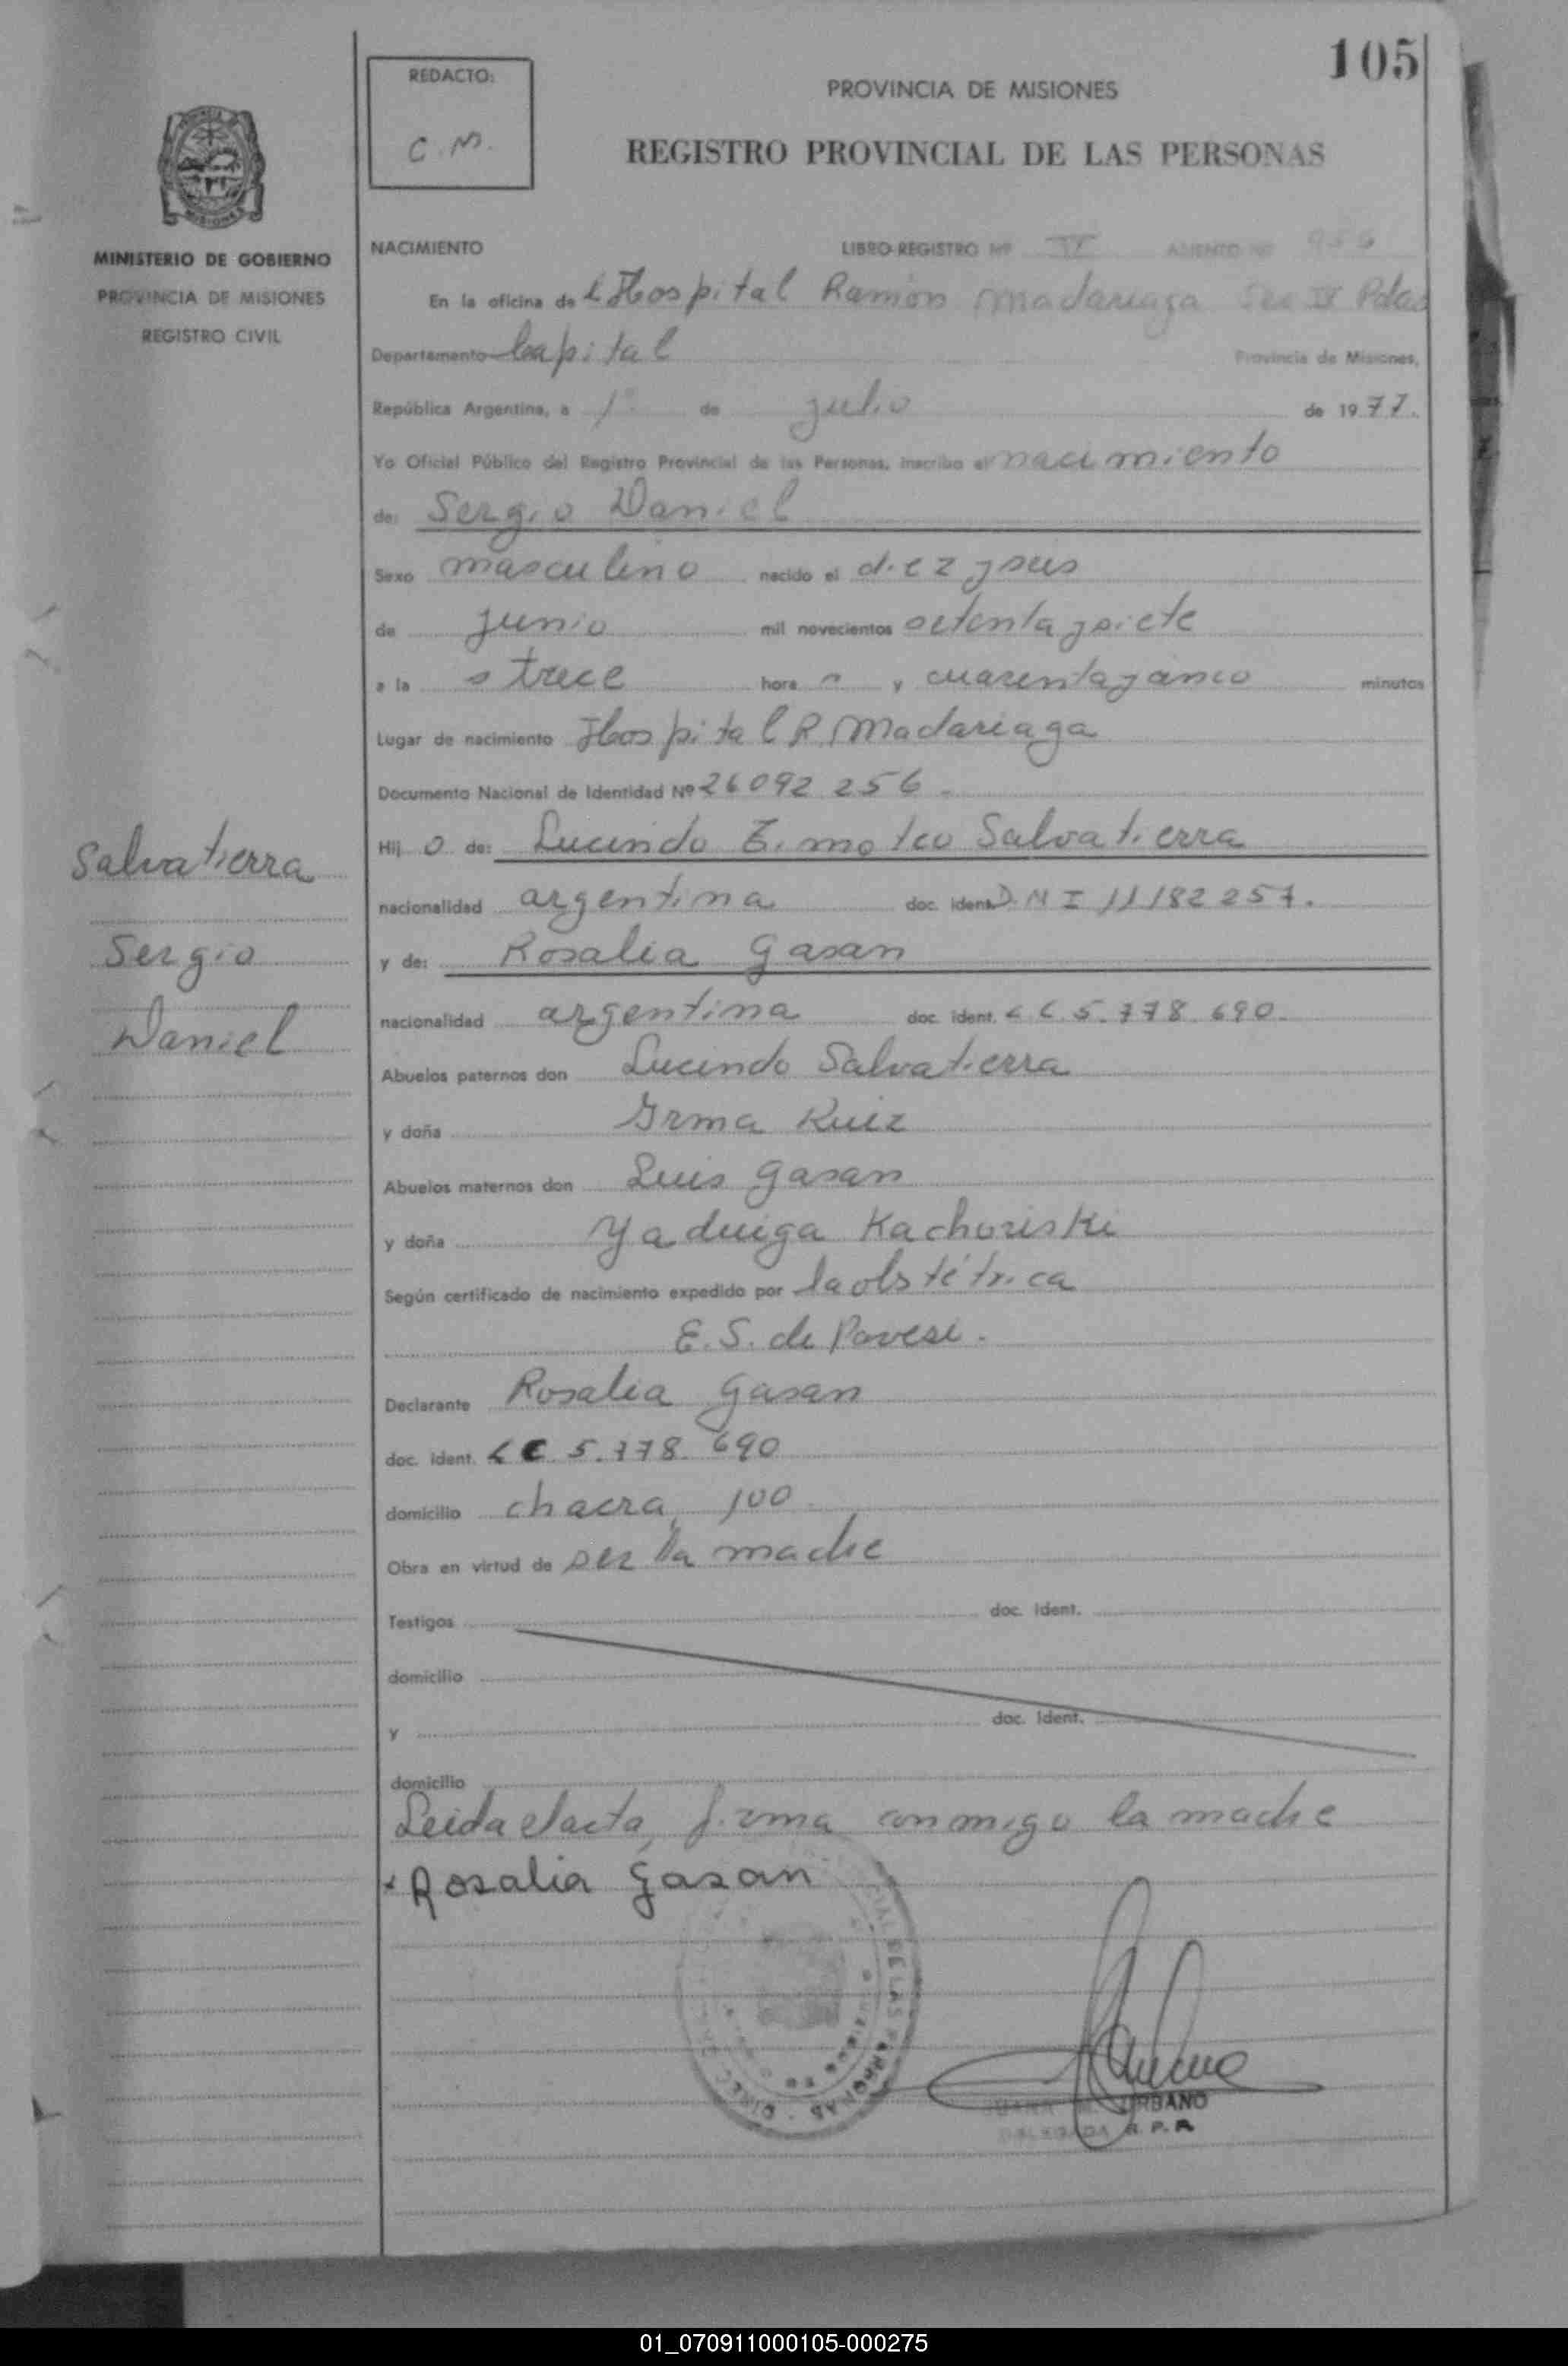 105
REDACTO:
C.M.
PROVINCIA DE MISIONES
REGISTRO PROVINCIAL DE LAS PERSONAS
MINISTERIO DE GOBIERNO
PROVINCIA DE MISIONES
REGISTRO CIVIL
NACIMIENTO LIBRO-REGISTRO Nº IV ASIENTO Nº
En la oficina del Hospital Ramón Madariaga Sec IV Pdas
Departamento Capital Provincia de Misiones,
República Argentina, a 1º de julio de 1977.
Yo Oficial Público del Registro Provincial de las Personas, inscribo el nacimiento
de: Sergio Daniel
Sexo masculino nacido el diez y seis
de junio mil novecientos setenta y siete
a las trece hora s y cuarenta y cinco minutos
Lugar de nacimiento Hospital R. Madariaga
Documento Nacional de Identidad Nº 26092 256.
Hij o de: Lucindo Timoteo Salvatierra
nacionalidad argentina doc. ident. D.N I 11182257.
y de: Rosalia Gasan
nacionalidad argentina doc. ident. L C. 5.778.690.
Abuelos paternos don Lucindo Salvatierra
y doña Irma Ruiz
Abuelos maternos don Luis Gasan
y doña Yaduiga Kachoriski
Según certificado de nacimiento expedido por la obstétrica
E. S. de Pavesi.
Declarante Rosalia Gasan
doc. ident. L C. 5.778.690
domicilio chacra, 100.
Obra en virtud de ser la madre
Testigos doc. ident.
domicilio
y doc. ident.
domicilio
Leida el acta, firma conmigo la madre
Rosalia Gasan
Salvatierra
Sergio
Daniel
URBANO
DELEGADA R. P. P.
01_070911000105-000275